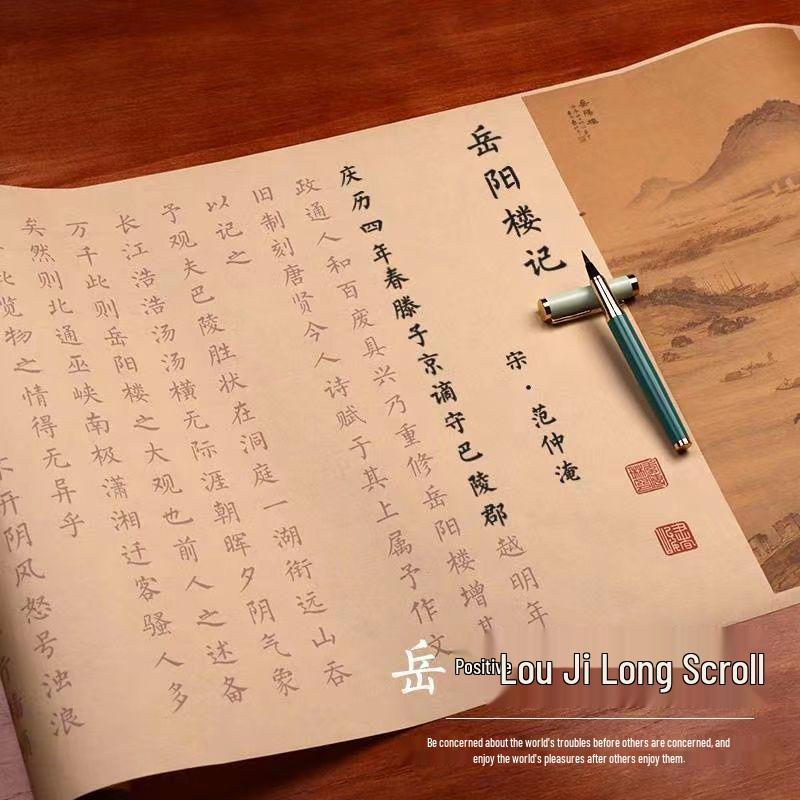 岳阳楼记
宋·范仲淹
庆历四年春滕子京谪守巴陵郡越明年
政通人和百废具兴乃重修岳阳楼增其
旧制刻唐贤今人诗赋于其上属予作文
以记之
予观夫巴陵胜状在洞庭一湖衔远山吞
长江浩浩汤汤横无际涯朝晖夕阴气象
万千此则岳阳楼之大观也前人之述备
矣然则北通巫峡南极潇湘迁客骚人多
览物之情得无异乎
开阴风怒号浊浪
岳 Positive Lou Ji Long Scroll
Be concerned about the world's troubles before others are concerned, and
enjoy the world's pleasures after others enjoy them.